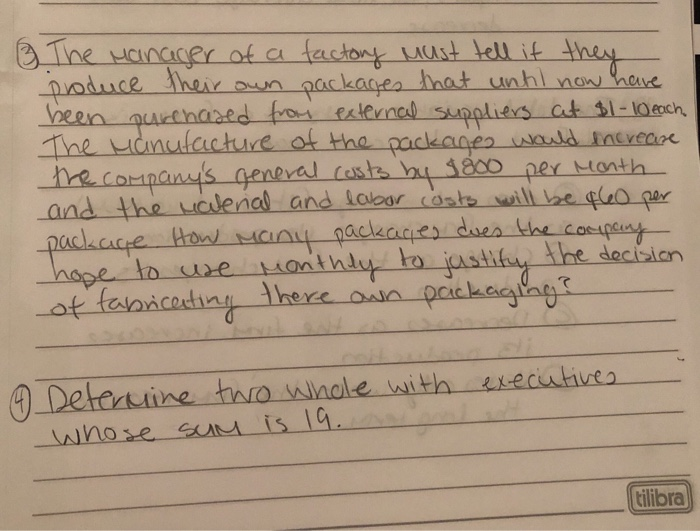 ③ The manager of a factory must tell if they
produce their own packages that until now have
been purchased from external suppliers at $1-10 each.
The manufacture of the packages would increase
the company's general costs by $800 per month
and the material and labor costs will be ¢60 per
package How many packages does the company
hope to use monthly to justify the decision
of fabricating there own packaging?
④ Determine two whole with executives
whose sum is 19.
tilibra